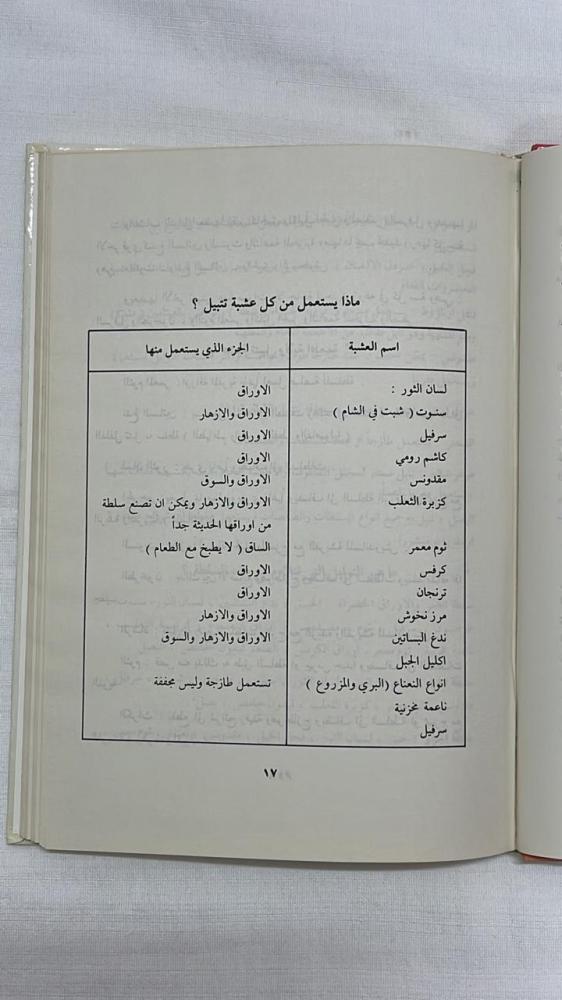 ماذا يستعمل من كل عشبة تتبيل ؟
اسم العشبة	الجزء الذي يستعمل منها
لسان الثور :	الاوراق
سنوت ( شبت في الشام )	الاوراق والازهار
سرفيل	الاوراق
كاشم رومي	الاوراق
مقدونس	الاوراق والسوق
كزبرة الثعلب	الاوراق والازهار ويمكن ان تصنع سلطة
من اوراقها الحديثة جداً
ثوم معمر	الساق ( لا يطبخ مع الطعام )
كرفس	الاوراق
ترنجان	الاوراق
مرز نخوش	الاوراق والازهار
ندغ البساتين	الاوراق والازهار والسوق
اكليل الجبل
انواع النعناع (البري والمزروع )	تستعمل طازجة وليس مجففة
ناعمة مخزنية
سرفيل
١٧